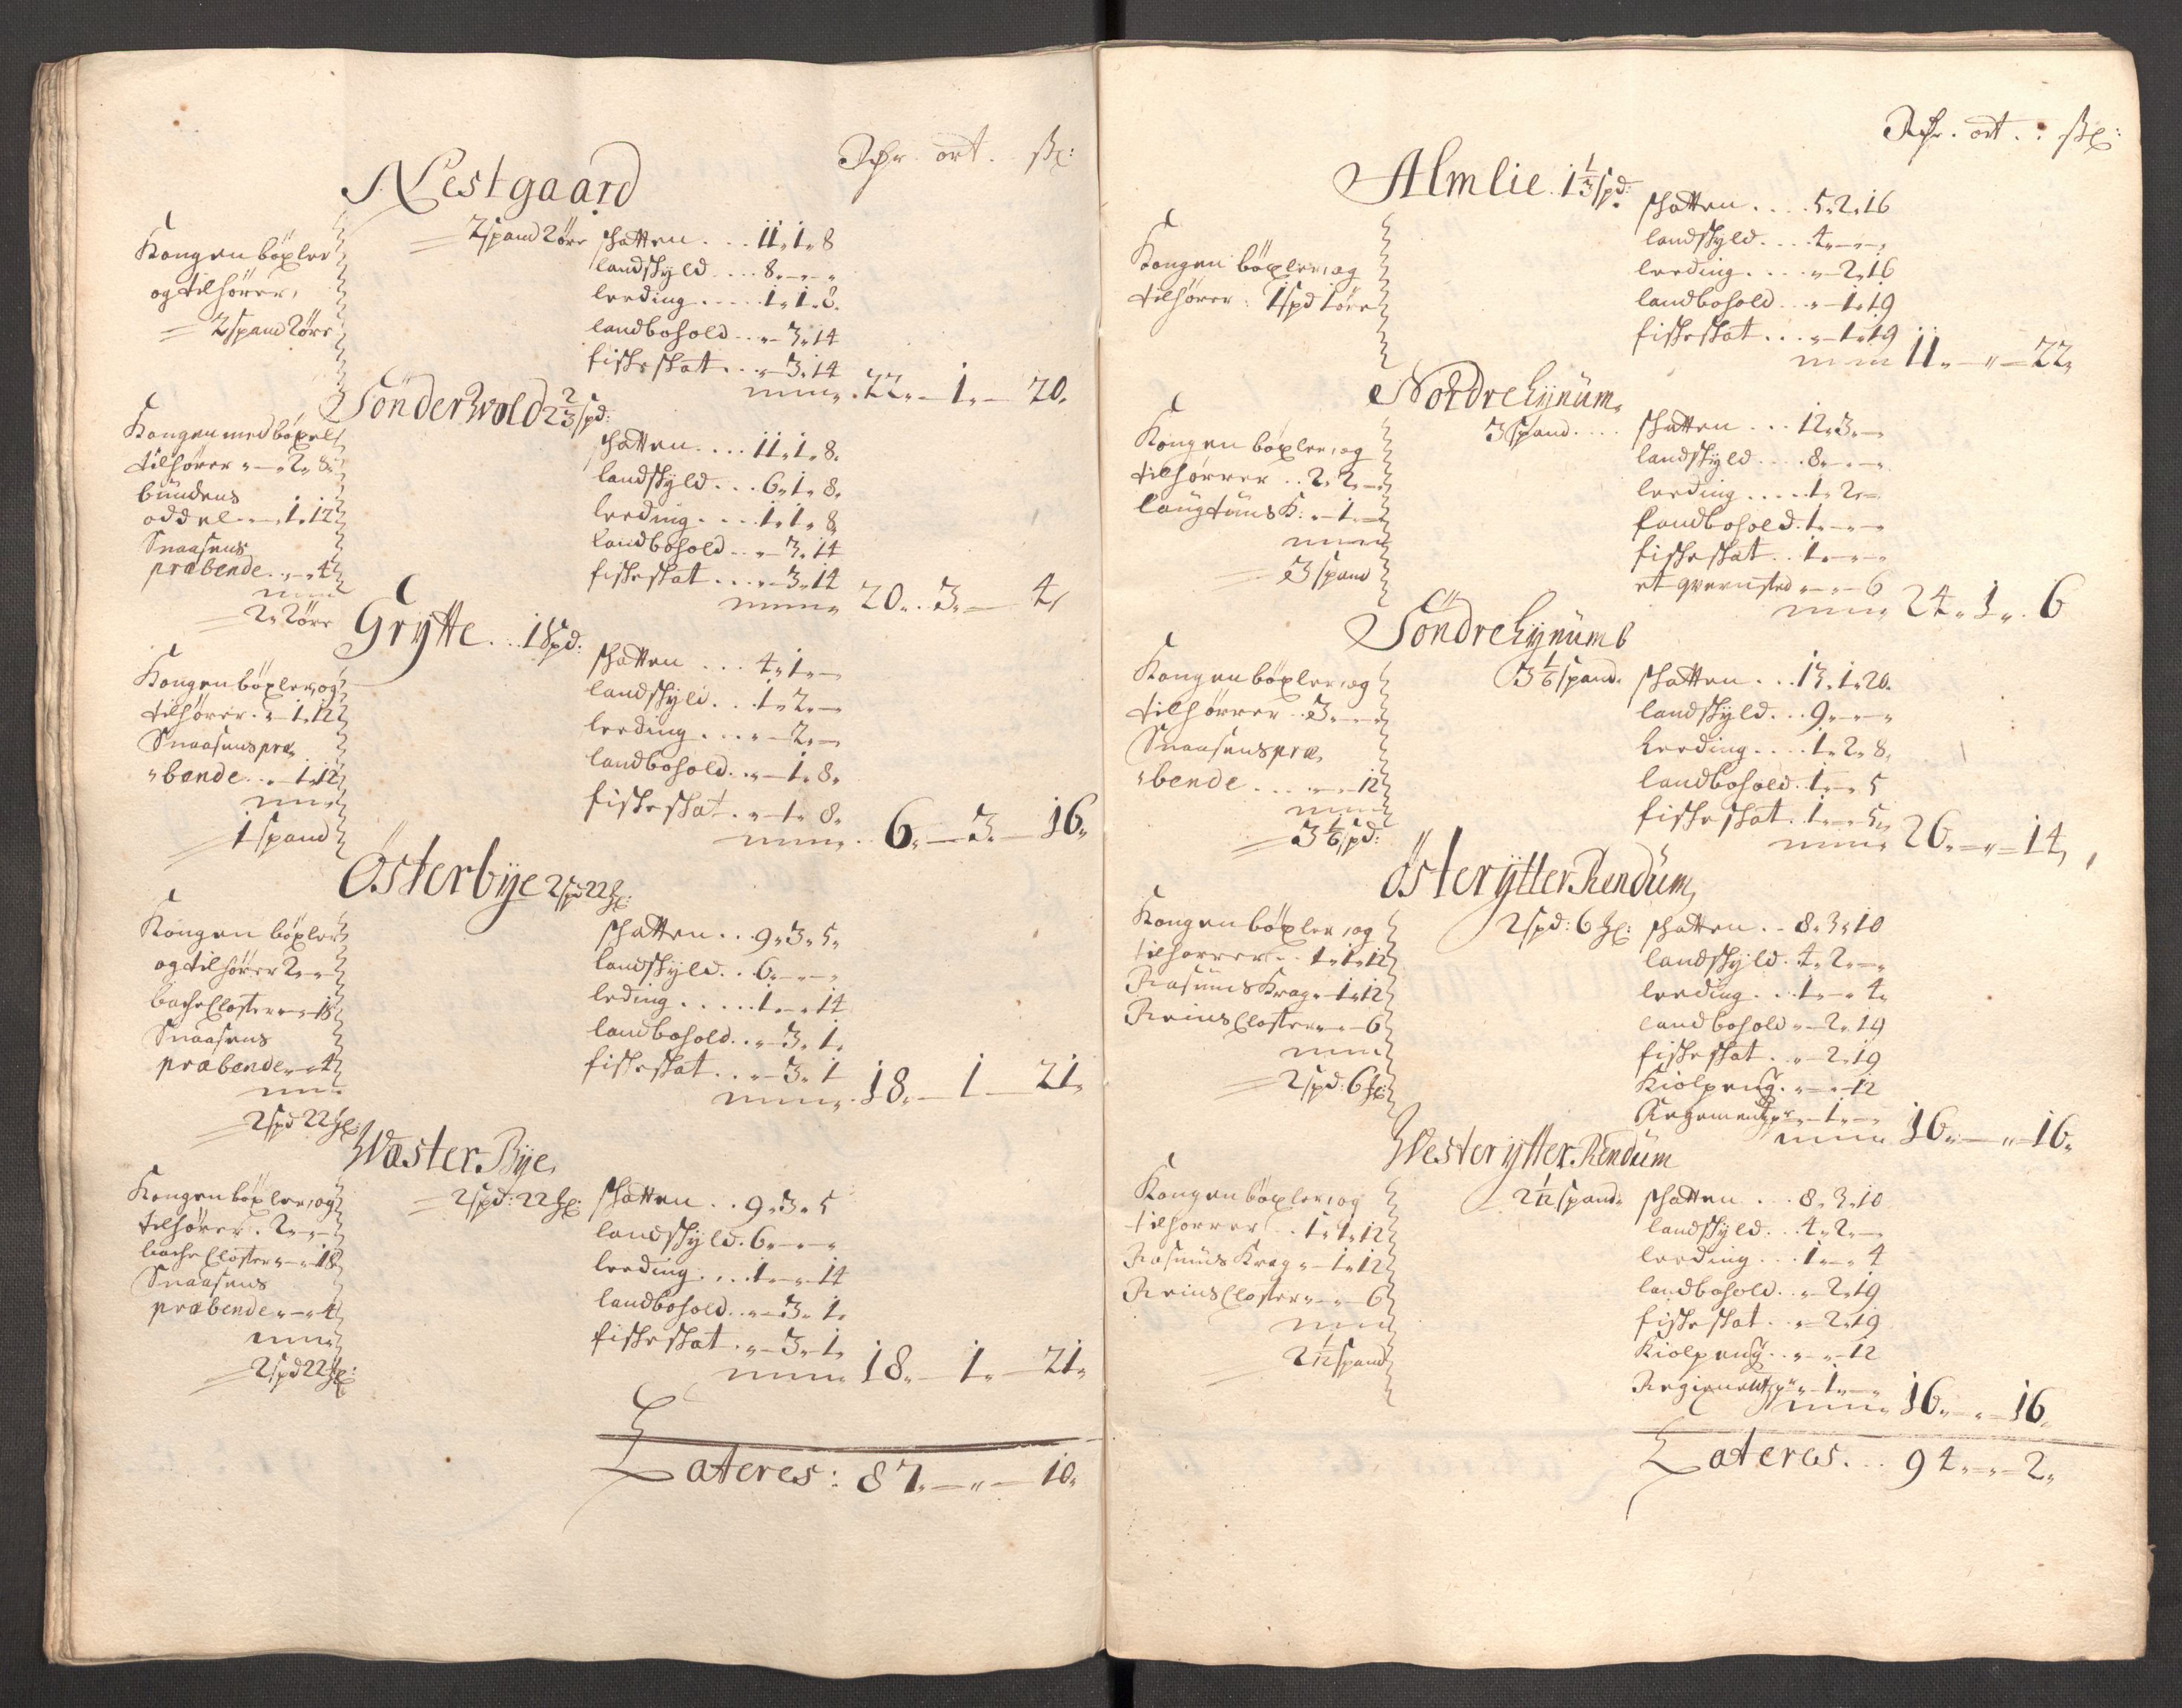 Rdr. ort. sk:
Nestgaard
Kongen böxler
og tilhører,
2 spand 2 öre
2 spand 2 öre
schatten . . . 11 " 1 " 8
landskyld . . . . 8 " - " - "
leeding . . . . . 1 " 1 " 8.
landbohold . . . " - 3 " 14
fiskeskat . . . " - 3 " 14
22 " - 1 " - 20.
Sönder Wold 2 2/3 spd:
Kongen med böxel
tilhører " - " 2 " 8 "
bundens
oddel " - " 1 " 12
Snaasens
præbende " - " 4
2 " 2 öre
schatten . . . . 11 " 1 " 8.
landskyld . . . 6 " 1 " 8.
leeding . . . . 1 " 1 " 8
landbohold . . " - 3 " 14
fiskeskat . . . " - 3 " 14
20 " . 3 " - 4
Grytte . . 1 Spd:
Kongen böxler, og
tilhører . " - 1 " 12
Snaasens præ,
"bende . . " - 1 " 12
1 spand
schatten . . . 4 " 1 " -
landskyld . . . 1 " 2 " -
leeding . . . . " - 2 " -
landbohold . . " - 1 " 8 "
fiskeskat . " - 1 " 8 "
6 " - 3 " - 16 "
Österbye 2 spd 22
Kongen böxler
og tilhører 2 " - "
bache Closter " - " 18
Snaasens
præbende " - " 4
2 spd 22
schatten . . 9 " 3 " 5 "
landskyld . . 6 " - " - "
leding . . . . . 1 " - " 14
landbohold . . " - 3 " 1 "
fiskeskat . . " - 3 " 1
18 " - 1 - 21 "
Wæster Bye,
Kongen böxler, og
tilhører . 2 " - " -
bache Closter " - " 18
Snaasens
præbende " - " 4
2 spd 22
2 spd: 22
schatten . . 9 " 3 " 5
landskyld . 6 " - " - "
leeding . . . 1 " - " 14
landbohold . . " - 3 " 1 "
fiskeskat . " - 3 " 1 "
18 " - 1 " - 21 "
Lateres : 87 " - " - 10 "
Rdr. ort . . sk:
Almlie . 1 1/3 spd:
Kongen böxler, og
tilhører : 1 spd 1 öre
schatten . . . . 5 " 2 " 16
landskyld . . . . 4 " - " - "
leeding . . . . " - 2 " 16
landbohold . . " - 1 " 19
fiskeskat . . . " - 1 " 19
11 " - " - 22 "
Nordre Lynüm,
3 spand . . . .
Kongen böxler, og
tilhörrer . . 2 " 2 " -
Laugtuns K: " - 1 " -
3 spand
schatten . . . 12 " 3 " -
landskyld . . . . 8 " - " - "
leeding . . . . . 1 " 2 " -
landbohold . 1 " - " - "
fiskeskat . . 1 " - " - "
et qvernsted " - " - 6
24 " 1 " . 6
Söndre Lynümb
3 1/6 spand .
Kongen böxler, og
tilhörrer . . 3 " - " -
Snaasens præ,
"bende . . . " - " - 12
3 1/6 spd:
schatten . . . 13 " 1 " 20.
landskyld . . . 9 " - " - "
leeding . . . . 1 " 2 " 8 "
landbohold . 1 " - " 5
fiskeskat . 1 " - " 5 "
26 " - " - 14,
Öster ytter Rendüm,
2 spd: 6
Kongen böxler, og
tilhorrer . . 1 " 1 " 12
Rasmus Krag " - 1 " 12
Reins Closter " - " - 6
2 spd: 6
schatten . . 8 " 3 " 10
landskyld . 4 " 2 " - "
leeding . . . 1 " - " 4 "
landbohold " - 2 " 19
fiskeskat . " - 2 " 19
Kiolpeng . " - " - 12
Regementz " - 1 " - "
16 " - " - 16 "
Wester ytter Rendüm
2 1/12 spand "
Kongen böxler, og
tilhorrer . . 1 " 1 " 12
Rasmus Krag " - 1 " 12
Reins Closter " - " - 6
2 1/12 spand
schatten . . . 8 " 3 " 10
landskyld . . 4 " 2 " - "
leeding . . . 1 " - " 4
landbohold . . " - 2 " 19
fiskeskat . . " - 2 " 19
Kiolpeng . . " - " - 12
Regimentz " - 1 " - "
16 " - " - 16 "
Lateres . . 94 " - " - 2 "